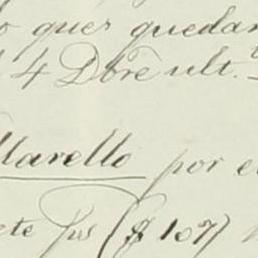 o quer quedan
4 Dbre ult.
Marello por e
ete ps ($107)